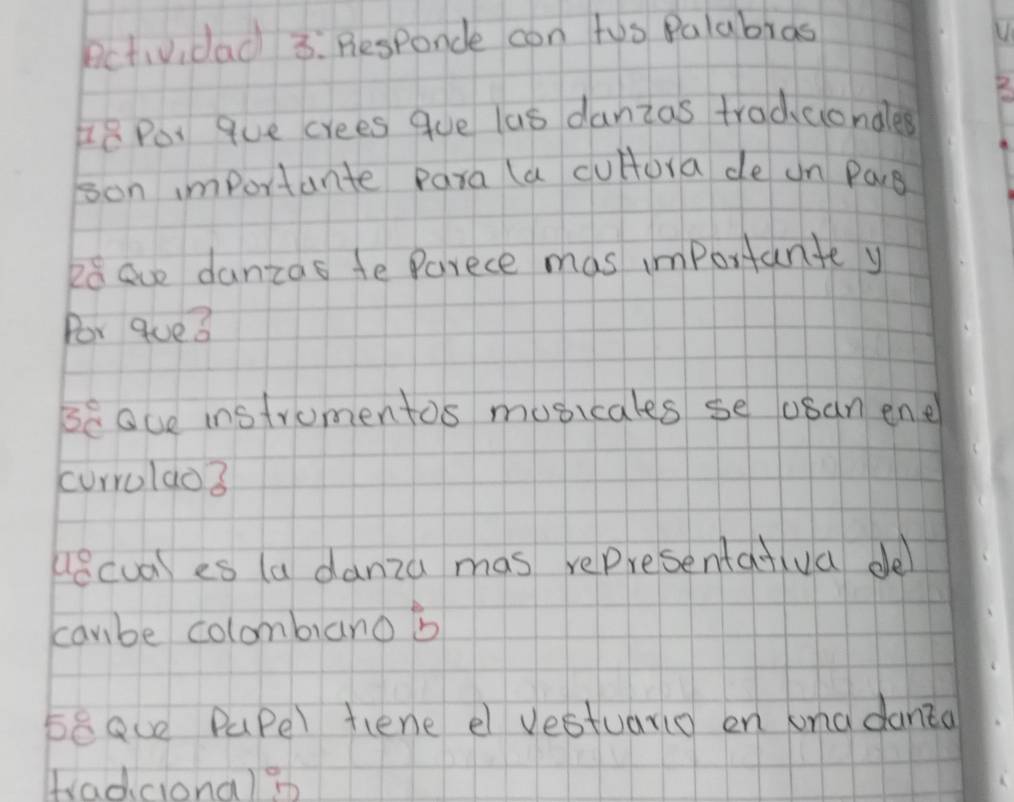 Actividad 3: Responde con tus Palabras
1¿ Por que crees que las danzas tradicionales
son importante para la cultura de un Pais
2¿ Que danzas te Parece mas importante y
Por que?
3¿ Que instrumentos musicales se usan en el
currulao?
4¿ cual es la danza mas representativa del
caribe colombiano ?
5¿ Que Papel tiene el vestuario en una danza
tradicional ?